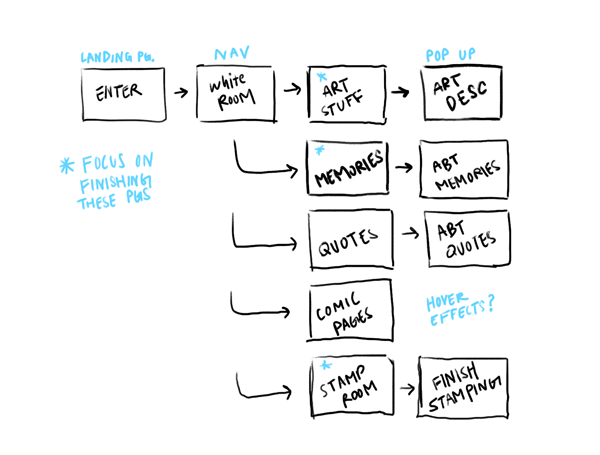 LANDING PG.
NAV
POP UP
ENTER
White
ROOM
* ART
STUFF
ART
DESC
* FOCUS ON
FINISHING
THESE PGS
*
MEMORIES
ABT
MEMORIES
QUOTES
ABT
QUOTES
COMIC
PAGES
HOVER
EFFECTS?
*
STAMP
ROOM
FINISH
STAMPING